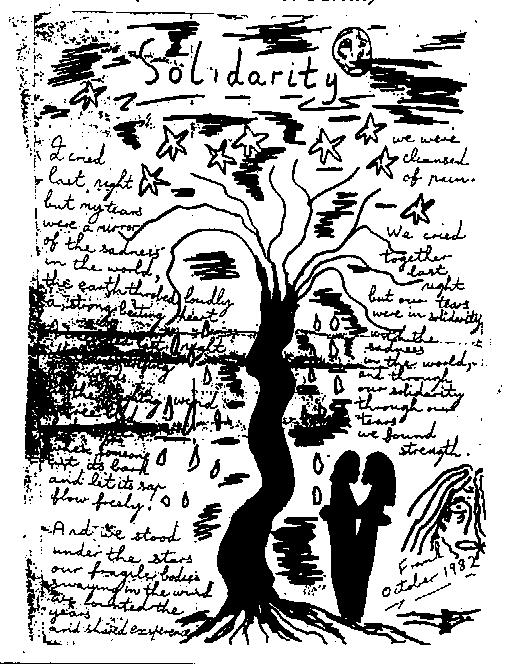 Solidarity
I cried
last night
but my tears
were a mirror
of the sadness
in the world,
the earth throbed loudly
a strong beating heart
night
the wind
then someone
bit its bark
and let its sap
flow freely.
And we stood
under the stars
our fragile bodies
swaying in the wind
we counted the
years
and shared experience
we were
cleansed
of pain.
We cried
together
last
night
but our tears
were in solidarity
with the
sadness
in the world,
and through
our solidarity
through our
tears
we found
strength.
October 1982